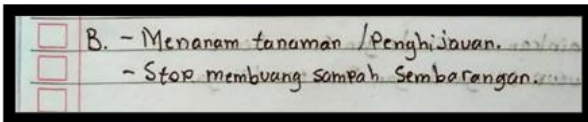 B. - Menanam tanaman / Penghijauan.
- Stop membuang sampah Sembarangan.